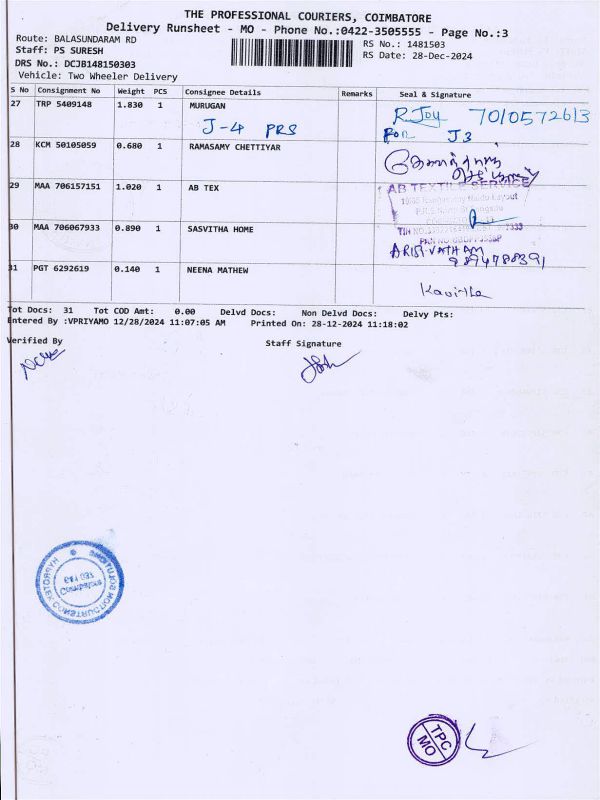 THE PROFESSIONAL COURIERS, COIMBATORE
Delivery Runsheet - MO - Phone No.:0422-3505555 - Page No.:3
Route: BALASUNDARAM RD
RS No.: 1481503
Staff: PS SURESH
RS Date: 28-Dec-2024
DRS No.: DCJB148150303
Vehicle: Two Wheeler Delivery
S No Consignment No Weight PCS Consignee Details Remarks Seal & Signature
27 TRP 5409148 1.830 1 MURUGAN R Joy 7010572613
J-4 PRS FOR J3
28 KCM 50105059 0.680 1 RAMASAMY CHETTIYAR
29 MAA 706157151 1.020 1 AB TEX AB TEXTILE SERVICE
30 MAA 706067933 0.890 1 SASVITHA HOME
9894788391
31 PGT 6292619 0.140 1 NEENA MATHEW
Kavitha
Tot Docs: 31 Tot COD Amt: 0.00 Delvd Docs: Non Delvd Docs: Delvy Pts:
Entered By :VPRIYAMO 12/28/2024 11:07:05 AM Printed On: 28-12-2024 11:18:02
Verified By Staff Signature
TPC
MO